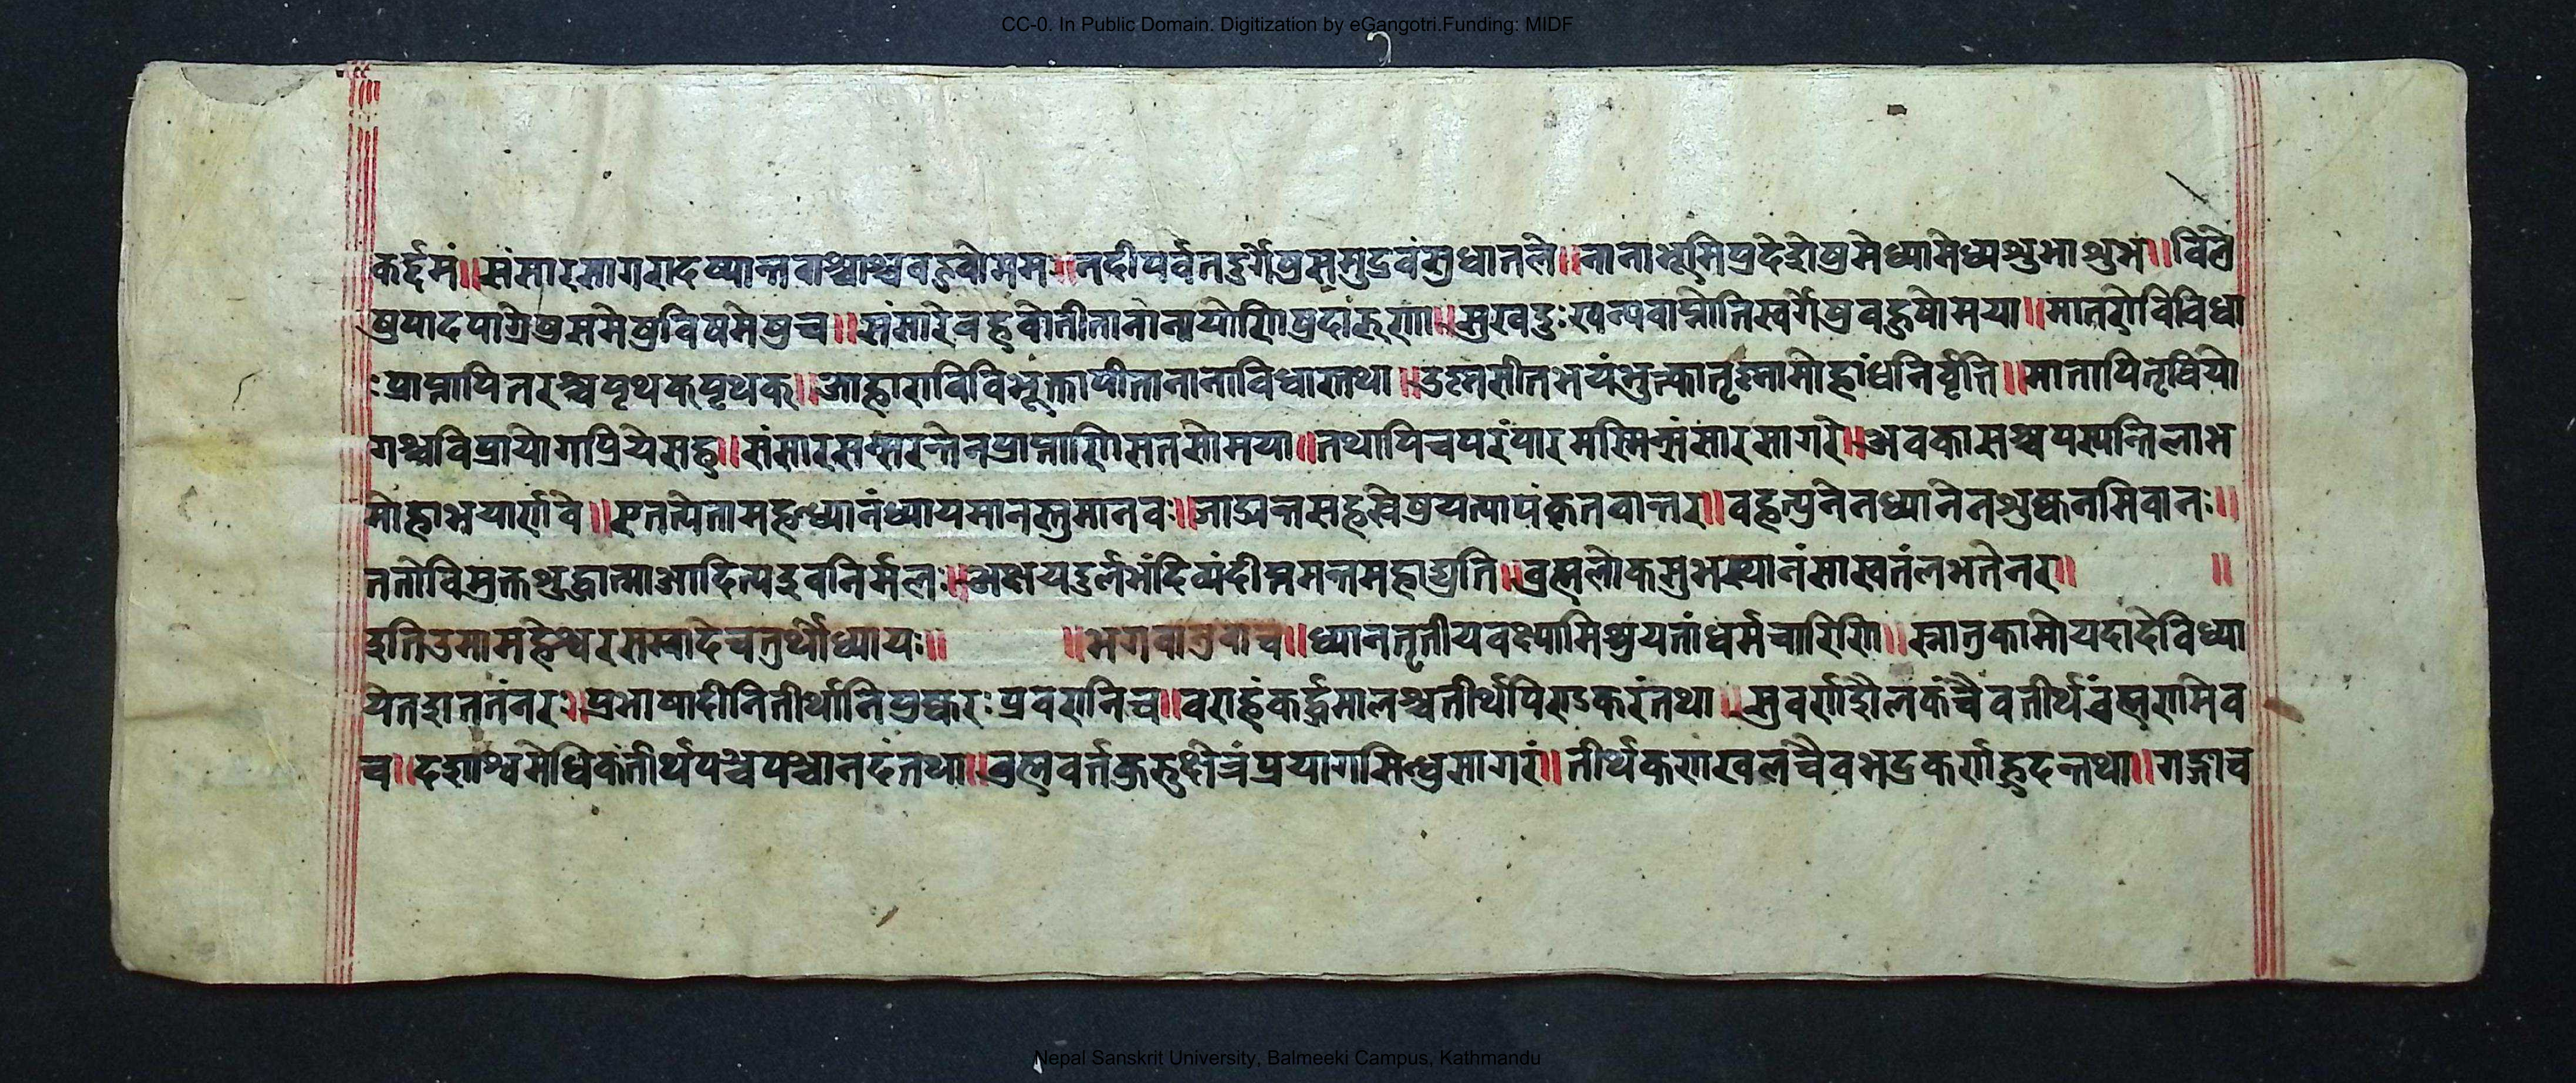 CC-0. In Public Domain. Digitization by eGangotri.Funding: MIDF
कर्द्दमं॥संसारसागरादष्यान्तवाश्चाश्चवहवोमम॥नदीपर्वतदुर्गेषुससुद्रवंसुधातले॥नानाभूमिप्रदेशेषुमेध्यामेध्यशुभाशुभ॥विले
षुपादपाग्रेषुसमेषुविषमेषुच॥संसारेवहवोतीतानानायोणिषुदारुणा॥सुखदुःखन्त्रवाप्नोतिस्वर्गेषुवहुषोमया॥मातरोविविधा
ःप्राप्नापितरश्चपृथकपृथक॥आहाराविविभूक्तापीतानानाविधास्तथा॥उष्नसीतभयंभुन्कातृष्नामोहांधनिर्वृति॥मातापितृविप्रयो
गश्चविप्रायोगप्रियेसह॥संसारसन्सरन्तेनप्राप्नाणिसतसोमया॥तथापिचपरंपारमस्मिन्संसारसागरे॥अवकासश्चपस्यन्तिलाभ
मोहाभयार्णवे॥एतत्येतामहध्यानंध्यायमानस्तुमानवः॥जाड्यन्तसहस्रेषुयत्पापंकृतवान्तर॥वहत्पुनेनध्यानेनशुष्कनमिवानः॥
ततोविमुक्तशुद्धात्माआदित्यइवनिर्मलः॥अक्षयदुर्लभंदिव्यंदीप्तमन्तमहाद्युति॥व्रह्मलोकसुभस्थानंसास्वतंलभतेनर॥ ॥
इतिउमामहेश्वरसम्वादेचतुर्थोध्यायः॥ ॥भगवानुवाच॥ध्यानतृतीयवक्ष्यामिश्रुयतांधर्मचारिणि॥स्नातुकामोयदादेविध्या
येतशान्ततंनरः॥प्रभाषादीनितीर्थानिपुष्करःप्रवरानिच॥वराहंकर्द्दमालश्चतीर्थपिण्डकरंतथा॥सुवर्णशैलकंचैवतीर्थव्रंह्मरामिव
च॥दशाश्वमेधिकंतीर्थपञ्चपञ्चानदंतथा॥व्रह्मवर्त्तकुरुक्षेत्रंप्रयागसिन्धुसागरं॥तीर्थकणखलचैवभद्रकर्णाहृदन्तथा॥गङ्गाच
Nepal Sanskrit University, Balmeeki Campus, Kathmandu